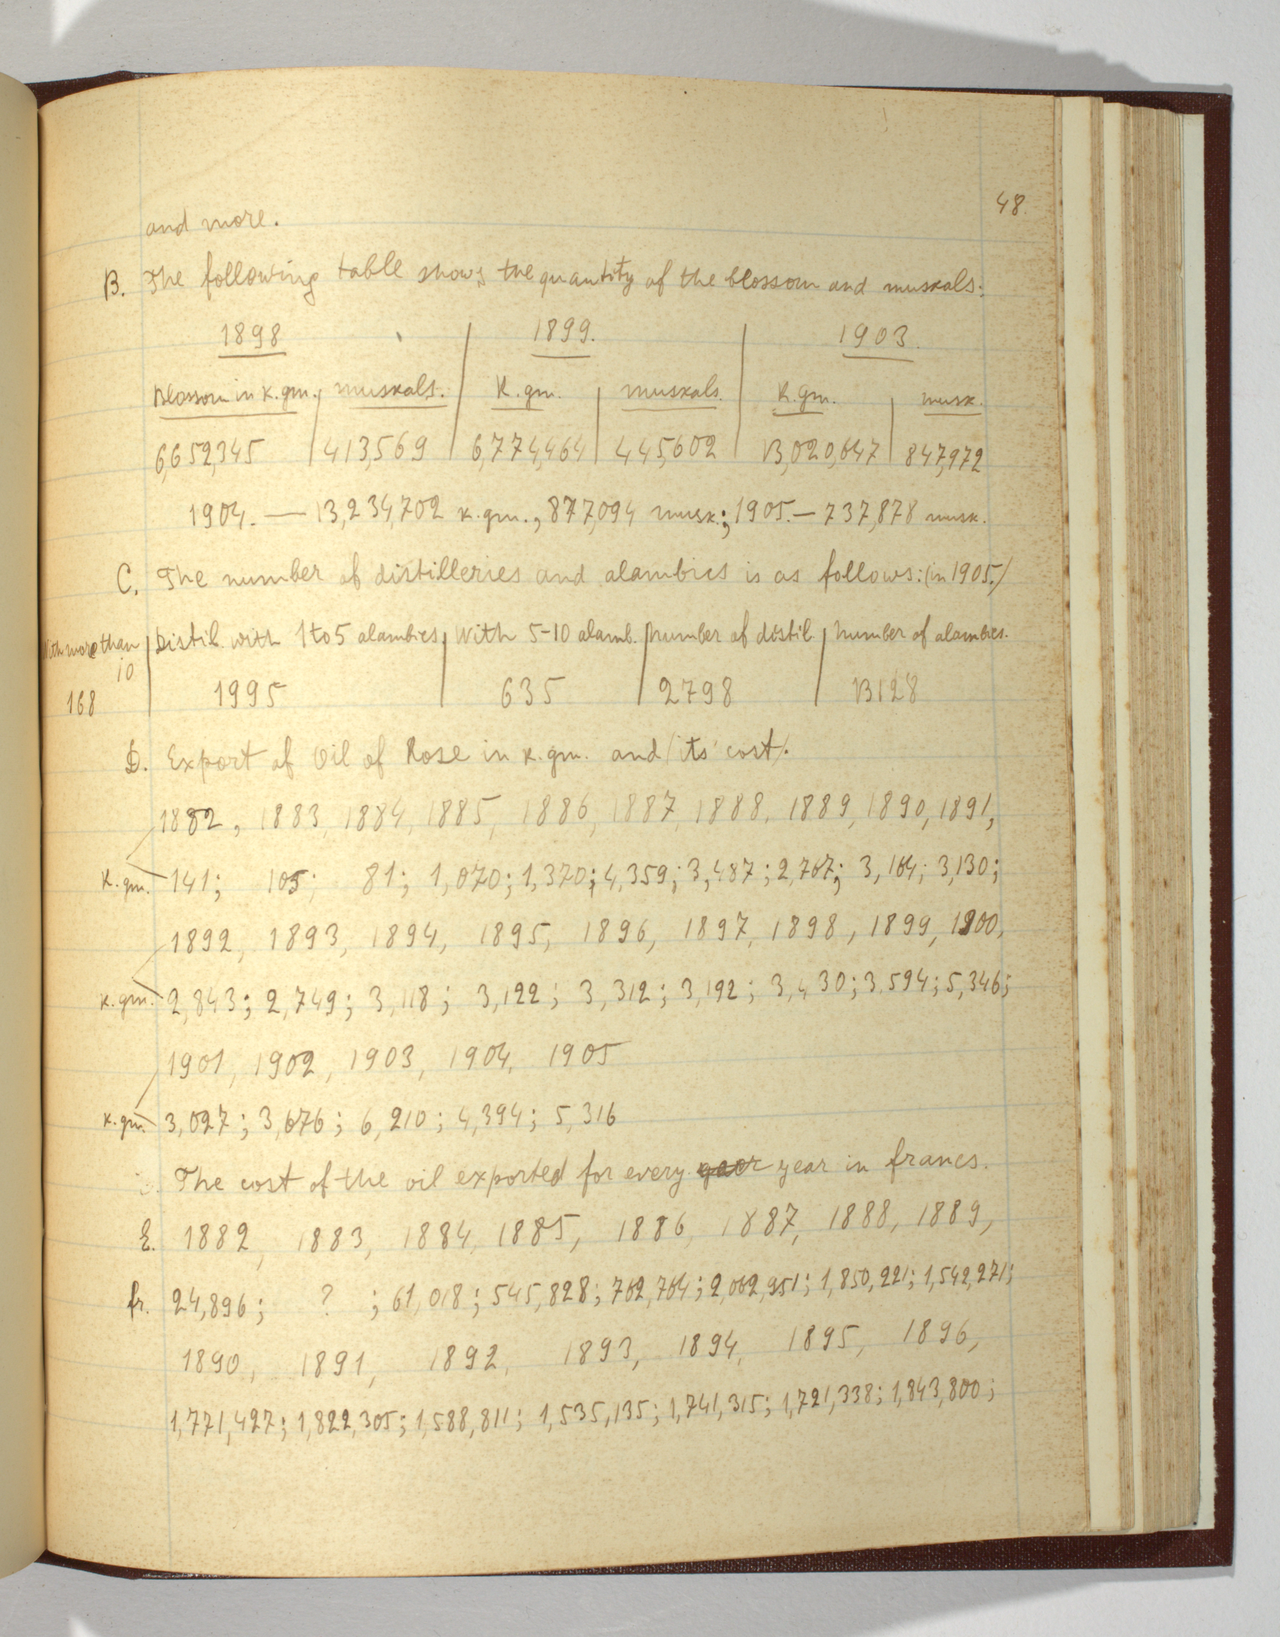 48
and more.
B. The following table shows the quantity of the blossom and muskals:
1898 1899. 1903.
Blossom in k.gm. muskals. K.gm. muskals. K.gm. musk.
6,652,345 413,569 6,774,464 445,602 13,020,647 847,972
1904. — 13,234,702 k.gm., 877,094 musk.; 1905. — 737,878 musk.
C. The number of distilleries and alambics is as follows: (in 1905.)
With more than 10 Distil. with 1 to 5 alambics, With 5-10 alamb. number of distil. number of alambics.
168 1995 635 2798 13128
D. Export of Oil of Rose in k.gm. and (its cost).
1882, 1883, 1884, 1885, 1886, 1887, 1888, 1889, 1890, 1891,
k.gm. 141; 105; 81; 1,070; 1,370; 4,359; 3,487; 2,767; 3,164; 3,130;
1892, 1893, 1894, 1895, 1896, 1897, 1898, 1899, 1900,
k.gm. 2,843; 2,749; 3,118; 3,122; 3,312; 3,192; 3,430; 3.594; 5,346;
1901, 1902, 1903, 1904, 1905
k.gm. 3,027; 3,676; 6,210; 4,394; 5,316
The cost of the oil exported for every year in francs.
E. 1882, 1883, 1884, 1885, 1886, 1887, 1888, 1889,
fr. 24,896; ? ; 61,018; 545,828; 762,764; 2,062,951; 1,850,221; 1,542,271;
1890, 1891, 1892, 1893, 1894, 1895, 1896,
1,771,427; 1,822,305; 1,588,811; 1,535,135; 1,741,315; 1,721,338; 1,843,800;